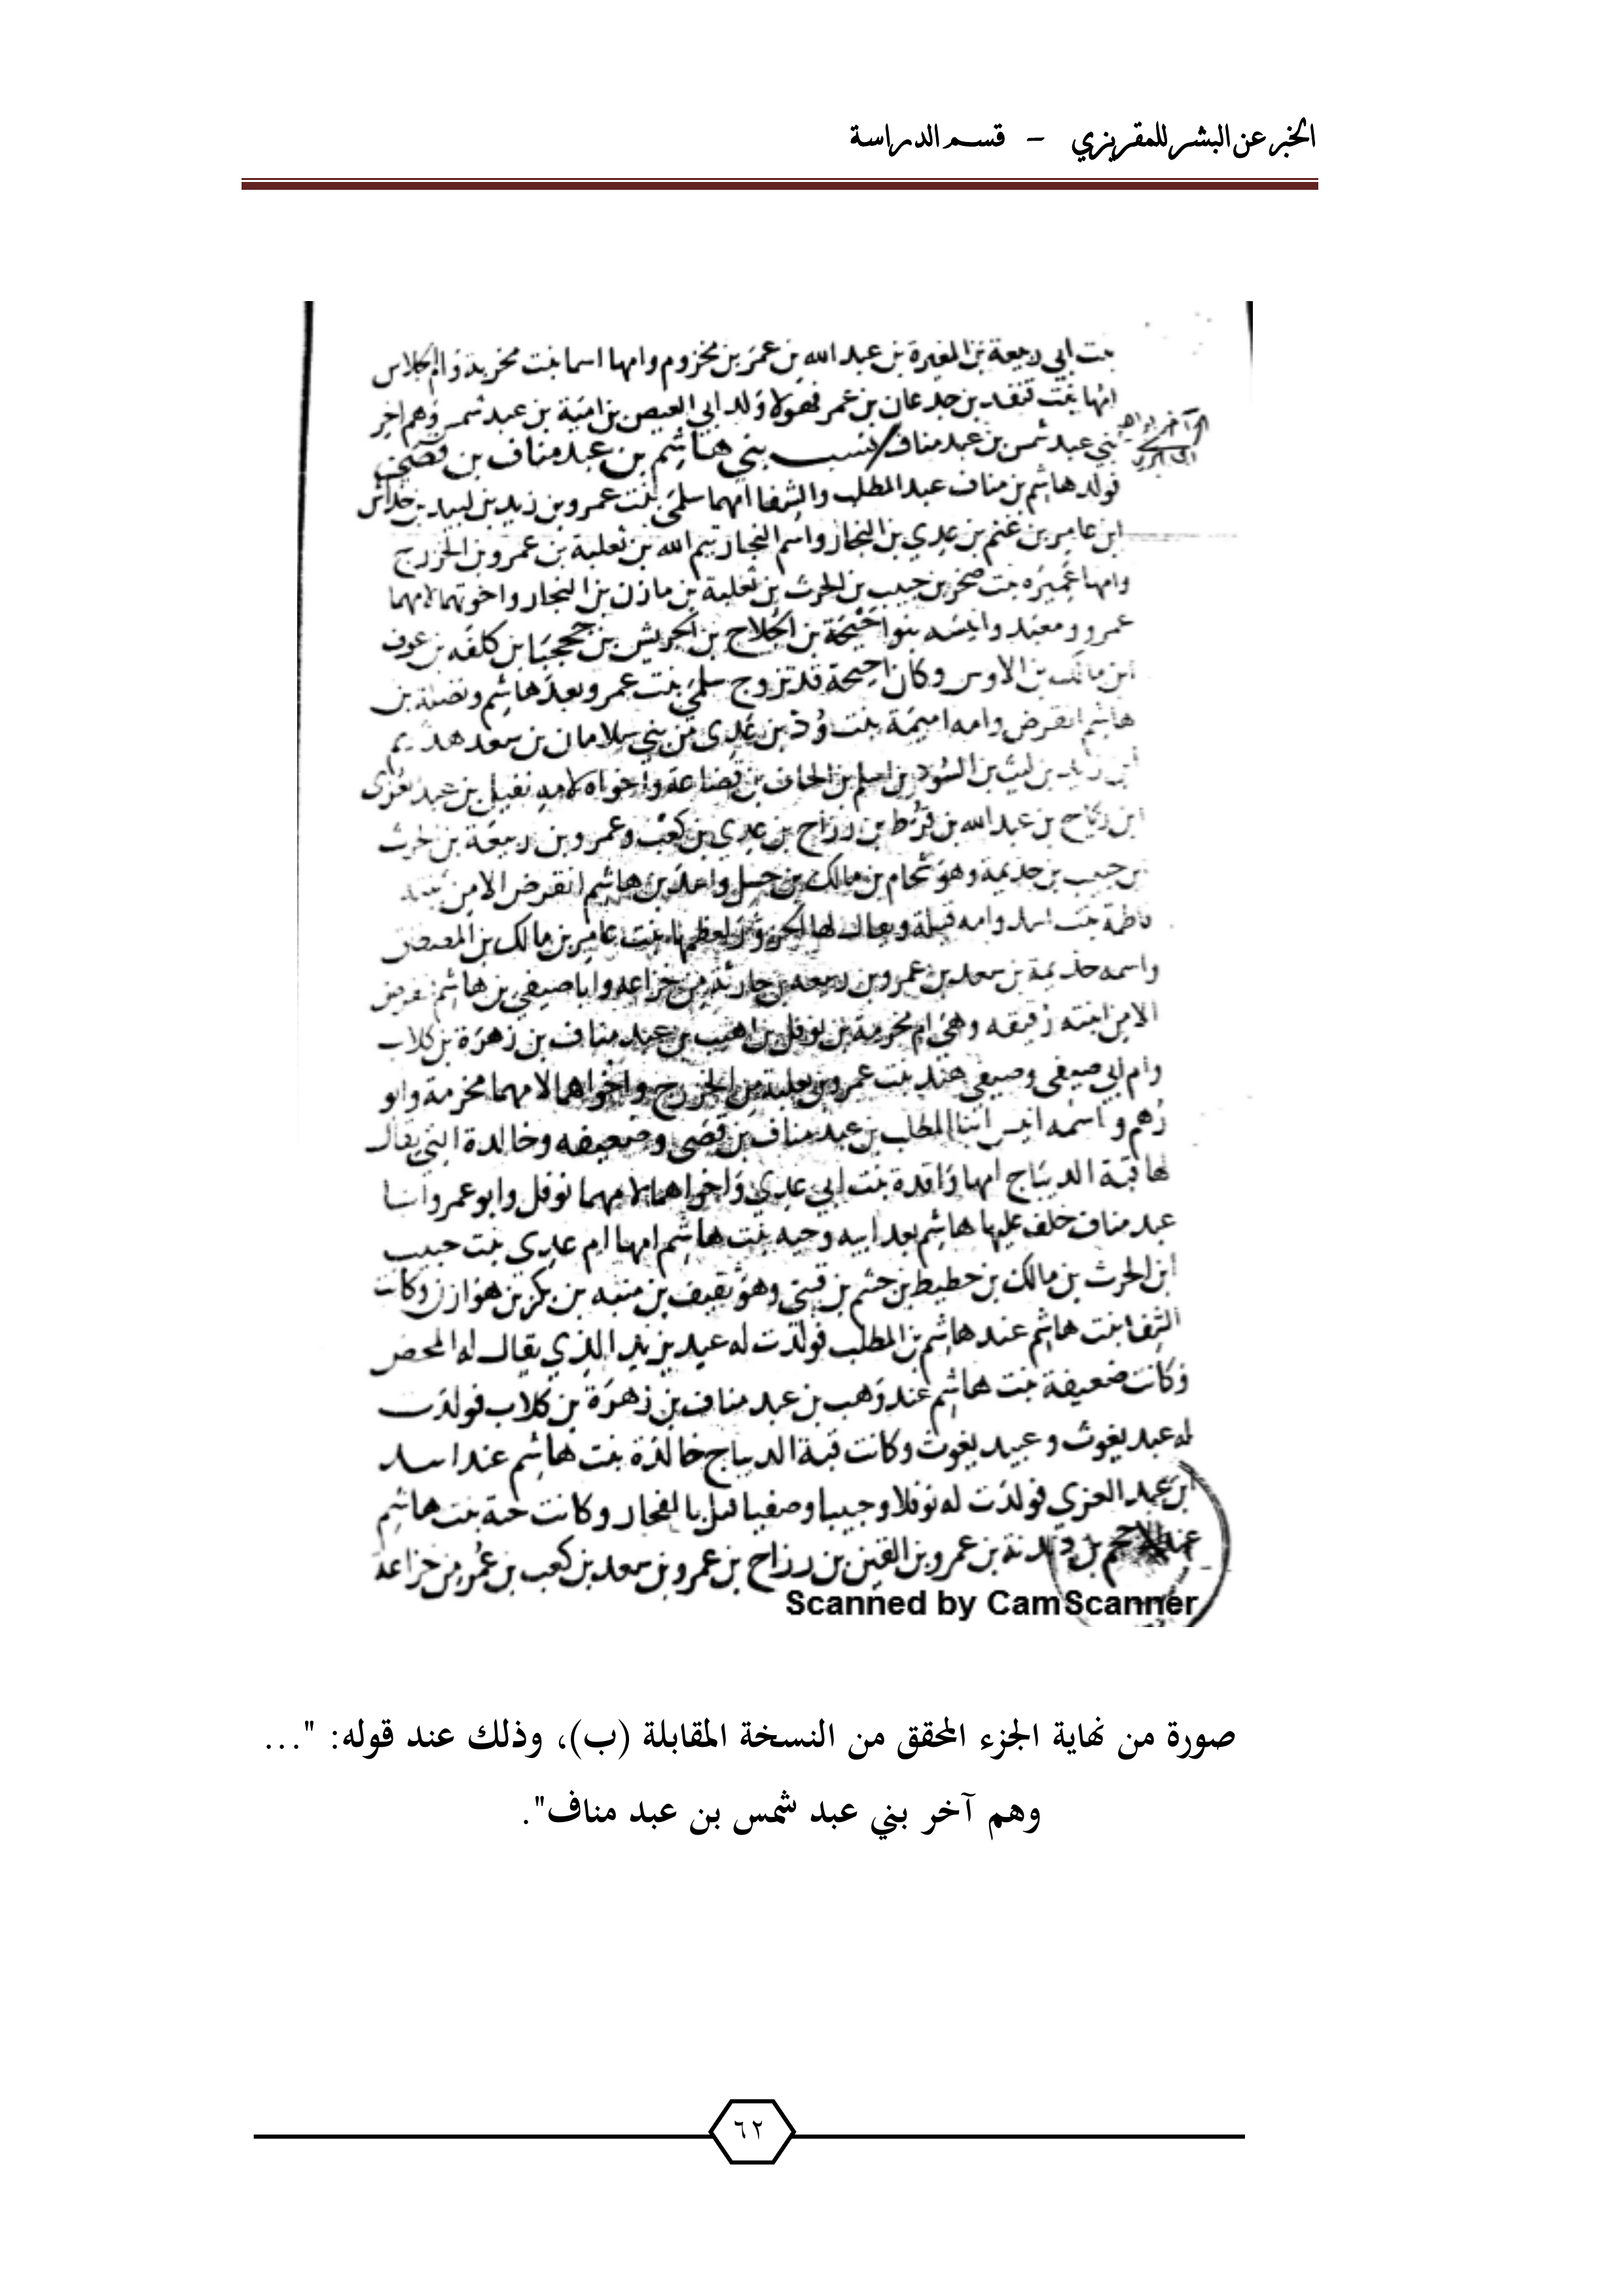 الخبر عن البشر للمقريزي - قسم الدراسة
بنت ابي ربيعة بن المغيرة بن عبد الله بن عمر بن مخزوم وامها اسما بنت مخربة وام الجلاس
امها بنت قنفد بن جدعان بن عمر فهولا ولد ابي العيص بن امية بن عبد شمس وهم اخر
بني عبد شمس بن عبد مناف / نسب بني هاشم بن عبد مناف بن قصي
فولد هاشم بن مناف عبد المطلب والشفا امهما سلمى بنت عمرو بن زيد بن لبيد بن خداش
ابن عامر بن غنم بن عدي بن النجار واسم النجار تيم الله بن ثعلبة بن عمرو بن الخزرج
وامها عميره بنت صخر بن حبيب بن الحرث بن ثعلبة بن مازن بن النجار واخوتهما لامهما
عمرو ومعبد وانيسه بنوا احيحة بن الجلاح بن الحريش بن جحجبا بن كلفه بن عوف
ابن مالك بن الاوس وكان احيحة قد تزوج سلمى بنت عمرو بعد هاشم ونضلة بن
هاشم انقرض وامه اميمة بنت ود بن عدي من بني سلامان بن سعد هذيم
ابن زيد بن ليث بن السود بن اسلم بن الحاف بن قضاعة واخواه لامه نفيل بن عبد العزى
ابن رياح بن عبد الله بن قرط بن رزاح بن عدي بن كعب وعمرو بن ربيعة بن الحرث
بن حبيب بن جذيمة وهو شحام بن مالك بن حسل واسد بن هاشم انقرض الا من
فاطمة بنت اسد وامه قيلة ويقال لها الجزور لعظمها بنت عامر بن مالك بن المصطلق
واسمه جذيمة بن سعد بن عمرو بن ربيعه بن حارثة من خزاعه وابا صيفي بن هاشم
الا من ابنته رقيقه وهي ام مخرمة بن نوفل بن اهيب بن عبد مناف بن زهرة بن كلاب
وام ابي صيفي وصيفي هند بنت عمرو بن ثعلبة من الخزرج واخواهما لامهما مخرمة وابو
رهم واسمه انيس ابنا المطلب بن عبد مناف بن قصي وضعيفه وخالدة التي يقال
لها قبة الديباج امها واقدة بنت ابي عدي واخواهما لامهما نوفل وابو عمرو ابنا
عبد مناف خلف عليها هاشم بعد ابيه وحيه بنت هاشم امها ام عدي بنت حبيب
ابن الحرث بن مالك بن حطيط بن جشم بن قسي وهو ثقيف بن منبه بن بكر بن هوازن وكانت
الشفا بنت هاشم عند هاشم بن المطلب فولدت له عبد يزيد الذي يقال له المحض
وكانت ضعيفة بنت هاشم عند وهب بن عبد مناف بن زهرة بن كلاب فولدت
له عبد يغوث وعبيد يغوث وكانت قبة الديباج خالدة بنت هاشم عند اسد
ابن عبد العزي فولدت له نوفلا وحبيبا وصفيا قتل بالفجار وكانت حية بنت هاشم
عند الاجحم بن دندنة بن عمرو بن القين بن رزاح بن عمرو بن سعد بن كعب بن عمرو من خزاعة
Scanned by CamScanner
صورة من نهاية الجزء المحقق من النسخة المقابلة (ب)، وذلك عند قوله: "...
وهم آخر بني عبد شمس بن عبد مناف".
٦٢